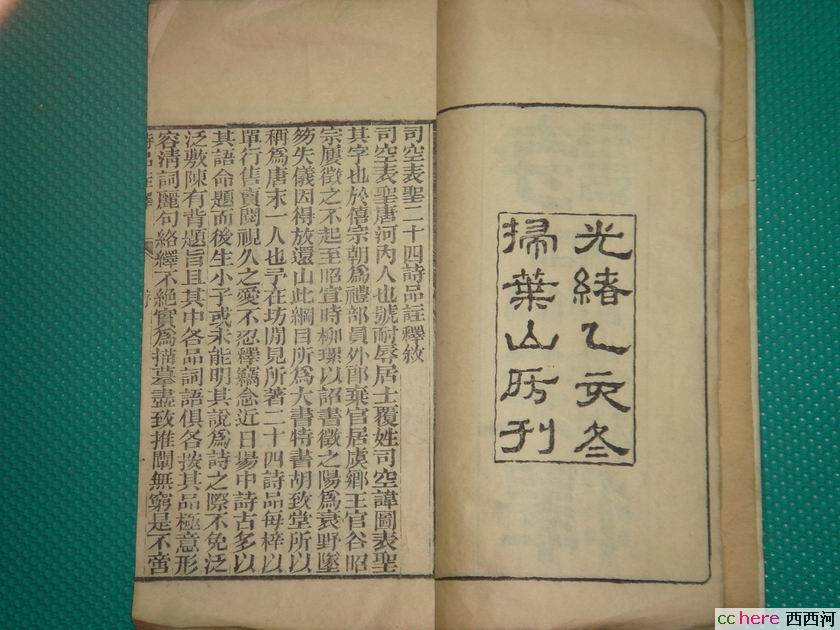 光緒乙亥冬
掃葉山房刊
司空表聖二十四詩品註釋敘
司空表聖唐河內人也號耐辱居士覆姓司空諱圖表聖
其字也於僖宗朝為禮部員外郎棄官居虞鄉王官谷昭
宗屢徵之不起至昭宣時柳璨以詔書徵之陽為衰野墜
笏失儀因得放還山此綱目所為大書特書胡致堂所以
稱為唐末一人也予在坊間見所著二十四詩品每梓以
單行售賣閱視久之愛不忍釋竊念近日場中詩古多以
其語命題而後生小子或未能明其說為詩之際不免泛
泛敷陳有背題旨且其中各品詞語俱各按其品極意形
容清詞麗句絡繹不絕實為描摹盡致推闡無窮是不啻
詩品註釋
cchere 西西河